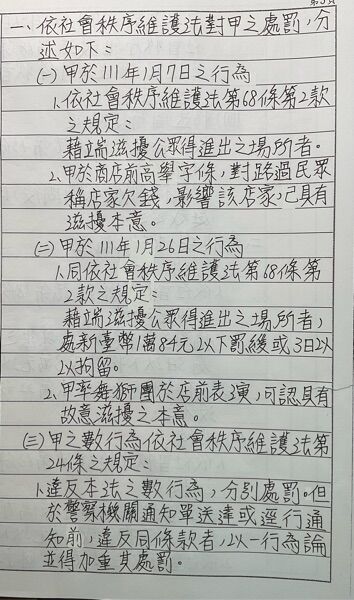 一、依社會秩序維護法對甲之處罰，分
述如下：
(一)甲於111年1月7日之行為
1.依社會秩序維護法第68條第2款
之規定：
藉端滋擾公眾得進出之場所者。
2.甲於商店前高舉字條，對路過民眾
稱店家欠錢，影響該店家，已具有
滋擾本意。
(二)甲於111年1月26日之行為
1.同依社會秩序維護法第68條第
2款之規定：
藉端滋擾公眾得進出之場所者，
處新臺幣1萬84元2以下罰緩或3日2以
以拘留。
2.甲率舞獅團於店前表演，可認具有
故意滋擾之本意。
(三)甲之數行為依社會秩序維護法第
24條之規定：
1.違反本法之數行為，分別處罰。但
於警察機關通知單送達或逕行通
知前，違反同條款者，以一行為論
並得加重其處罰。